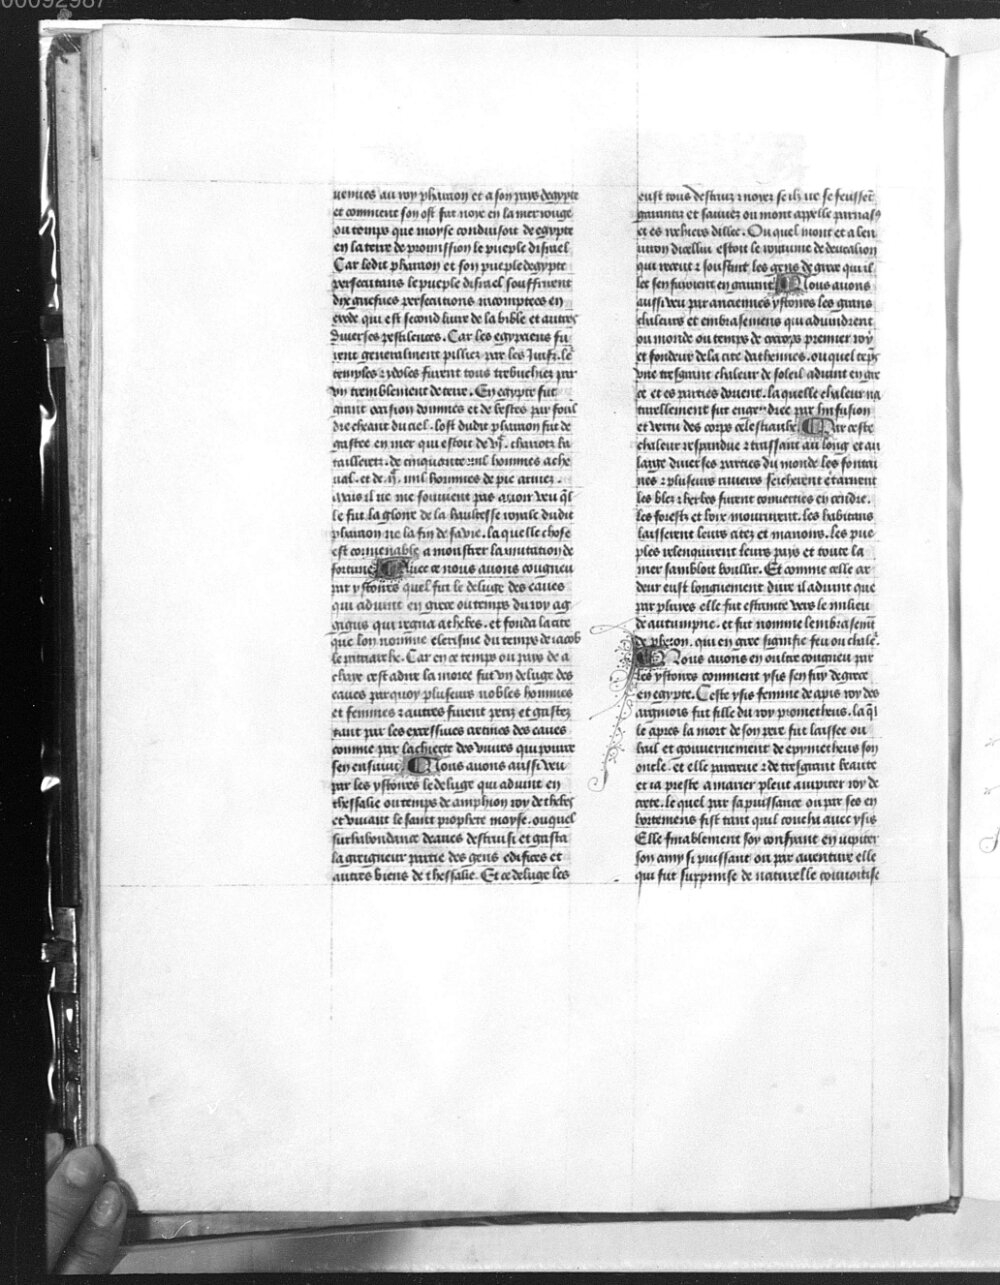 00092987
uenues au roy pharaon et a son pays degypte
et comment son ost fut noye en la mer rouge
ou temps que moyse conduisoit de egypte
en la terre de promission le pueple disrael
Car ledit pharaon et son pueple degypte
persecutans le pueple disrael souffrirent
dix griefues persecutions racomptees en
exode qui est second liure de la bible et autres
diuerses pestilences. Car les egypciens fu
rent generalment pilliez par les Juifz. le
temples et ydoles furent tous trebuchiez par
vn tremblement de terre. En egypte fut
grant occision dommes et de bestes par foul
dre cheant du ciel. lost dudit pharaon fut de
gastee en mer qui estoit de vjc. chariotz ba
tailleretz. de cinquante mil hommes a che
ual. et de ijc. mil hommes de pie armez.
Mais il ne me souuient pas auoir veu ql
le fut la gloire de la haultesse royale dudit
pharaon ne la fin de sa vie. la quelle chose
est conuenable a monstrer la mutation de
fortune Auec ce nous auons congneu
par ystoires quel fut le deluge des eaues
qui aduint en grece ou temps du roy og
gigus qui regna a thebes. et fonda la cite
que lon nomme elensine du temps de iacob
le patriarche. Car en ce temps ou pays de a
chaye cest adire la moree fut vn deluge des
eaues par quoy plusieurs nobles hommes
et femmes et autres furent periz et gastez
tant par les excessiues cretines des eaues
comme par la chierte des viures qui pouure
sen ensuiui. Nous auons aussi veu
par les ystoires le deluge qui aduint en
thessalie ou temps de amphion roy de thebes
et viuant le saint prophete moyse. ou quel
surhabondance deaues destruisi et gasta
la greigneur partie des gens edifices et
autres biens de thessalie. Et ce deluge les
eust tous destruiz et noyez se ilz ne se feussent
garantiz et sauuez ou mont appelle parnasus
et es rochiers dillec. Ou quel mont et a len
uiron dicellui estoit le royaume de deucalion
qui receut et soustint les gens de grece qui il
lec sen fuioient en garant Nous auons
aussi veu par anciennes ystoires les grans
chaleurs et embrasemens qui aduindrent
ou monde ou temps de cecrops premier roy
et fondeur de la cite dathennes. ou quel teps
vne tresgrant chaleur de soleil aduint en gre
ce et es parties dorient. la quelle chaleur na
turellement fut engendree par linfusion
et vertu des corps celestiaulx. Par ceste
chaleur respandue et trassant au long et au
large diuerses parties du monde les fontai
nes et plusieurs riuieres seicherent et tarirent
les blez et herbes furent conuerties en cendre.
les forestz et bois moururent. les habitans
laisserent leurs citez et manoirs. les pue
ples relenquirent leurs pays et toute la
mer sambloit boullir. Et comme celle ar
deur eust longuement dure il aduint que
par pluyes elle fut estainte vers le milieu
de autumpne. et fut nomme lembrasemt
de pheton. qui en grec signifie feu ou chale.
Nous auons en oultre congneu par
les ystoires comment ysis sen fuy de grece
en egypte. Ceste ysis femme de apis roy des
argiuois fut fille du roy prometheus. la ql
le apres la mort de son pere fut laissee ou
bail et gouuernement de epymetheus son
oncle. et elle pararue et de tresgrant beaute
et ia preste a marier pleut a iupiter roy de
crete. le quel par sa puissance ou par ses en
hortemens fist tant quil coucha auec ysis
Elle finablement soy confiant en iupiter
son amy si puissant ou par auenture elle
qui fut surprinse de naturelle conuoitise